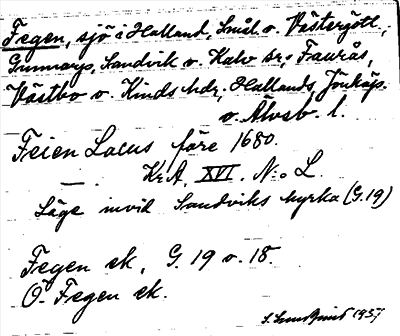 Fegen, sjö i Halland, Smål. o. Västergötl.,
Gunnarp, Sandvik o. Kalv sn:r Faurås,
Västbo o. Kinds hdr, Hallands, Jönköp.
o. Älvsb. l.
Feien Lacus före 1680.
— Kr.A. XVI. N:o L
Läge invid Sandviks kyrka (G.19)
Fegen ek. G. 19 o. 18.
Ö. Fegen ek.
1937